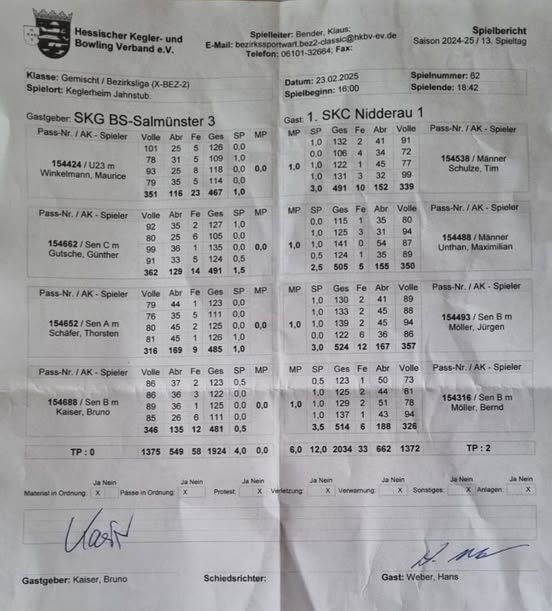 Hessischer Kegler- und
Bowling Verband e.V.
Spielleiter: Bender, Klaus;
E-Mail: bezirkssportwart.bez2-classic@hkbv-ev.de
Telefon: 06101-32664; Fax:
Spielbericht
Saison 2024-25 / 13. Spieltag
Klasse: Gemischt / Bezirksliga (X-BEZ-2)
Spielort: Keglerheim Jahnstub.
Datum: 23.02.2025 Spielnummer: 62
Spielbeginn: 16:00 Spielende: 18:42
Gastgeber: SKG BS-Salmünster 3 Gast: 1. SKC Nidderau 1
Pass-Nr. / AK - Spieler Volle Abr Fe Ges SP MP MP SP Ges Fe Abr Volle Pass-Nr. / AK - Spieler
101 25 5 126 0,0 1,0 132 2 41 91
78 31 5 109 1,0 0,0 106 4 34 72
154424 / U23 m 93 25 8 118 0,0 0,0 1,0 1,0 122 1 45 77 154538 / Männer
Winkelmann, Maurice 79 35 5 114 0,0 1,0 131 3 32 99 Schulze, Tim
351 116 23 467 1,0 3,0 491 10 152 339
Pass-Nr. / AK - Spieler Volle Abr Fe Ges SP MP MP SP Ges Fe Abr Volle Pass-Nr. / AK - Spieler
92 35 2 127 1,0 0,0 115 1 35 80
80 25 6 105 0,0 1,0 125 3 31 94
154662 / Sen C m 99 36 1 135 0,0 0,0 1,0 1,0 141 0 54 87 154488 / Männer
Gutsche, Günther 91 33 5 124 0,5 0,5 124 1 35 89 Unthan, Maximilian
362 129 14 491 1,5 2,5 505 5 155 350
Pass-Nr. / AK - Spieler Volle Abr Fe Ges SP MP MP SP Ges Fe Abr Volle Pass-Nr. / AK - Spieler
79 44 1 123 0,0 1,0 130 2 41 89
76 35 5 111 0,0 1,0 133 2 45 88
154652 / Sen A m 80 45 2 125 0,0 0,0 1,0 1,0 139 2 45 94 154493 / Sen B m
Schäfer, Thorsten 81 45 1 126 1,0 0,0 122 6 36 86 Möller, Jürgen
316 169 9 485 1,0 3,0 524 12 167 357
Pass-Nr. / AK - Spieler Volle Abr Fe Ges SP MP MP SP Ges Fe Abr Volle Pass-Nr. / AK - Spieler
86 37 2 123 0,5 0,5 123 1 50 73
86 36 3 122 0,0 1,0 125 2 44 81
154688 / Sen B m 89 36 1 125 0,0 0,0 1,0 1,0 129 2 51 78 154316 / Sen B m
Kaiser, Bruno 85 26 6 111 0,0 1,0 137 1 43 94 Möller, Bernd
346 135 12 481 0,5 3,5 514 6 188 326
TP : 0 1375 549 58 1924 4,0 0,0 6,0 12,0 2034 33 662 1372 TP : 2
Ja Nein Ja Nein Ja Nein Ja Nein Ja Nein Ja Nein Ja Nein
Material in Ordnung: X Pässe in Ordnung: X Protest: X Verletzung: X Verwarnung: X Sonstiges: X Anlagen: X
Gastgeber: Kaiser, Bruno Schiedsrichter: Gast: Weber, Hans